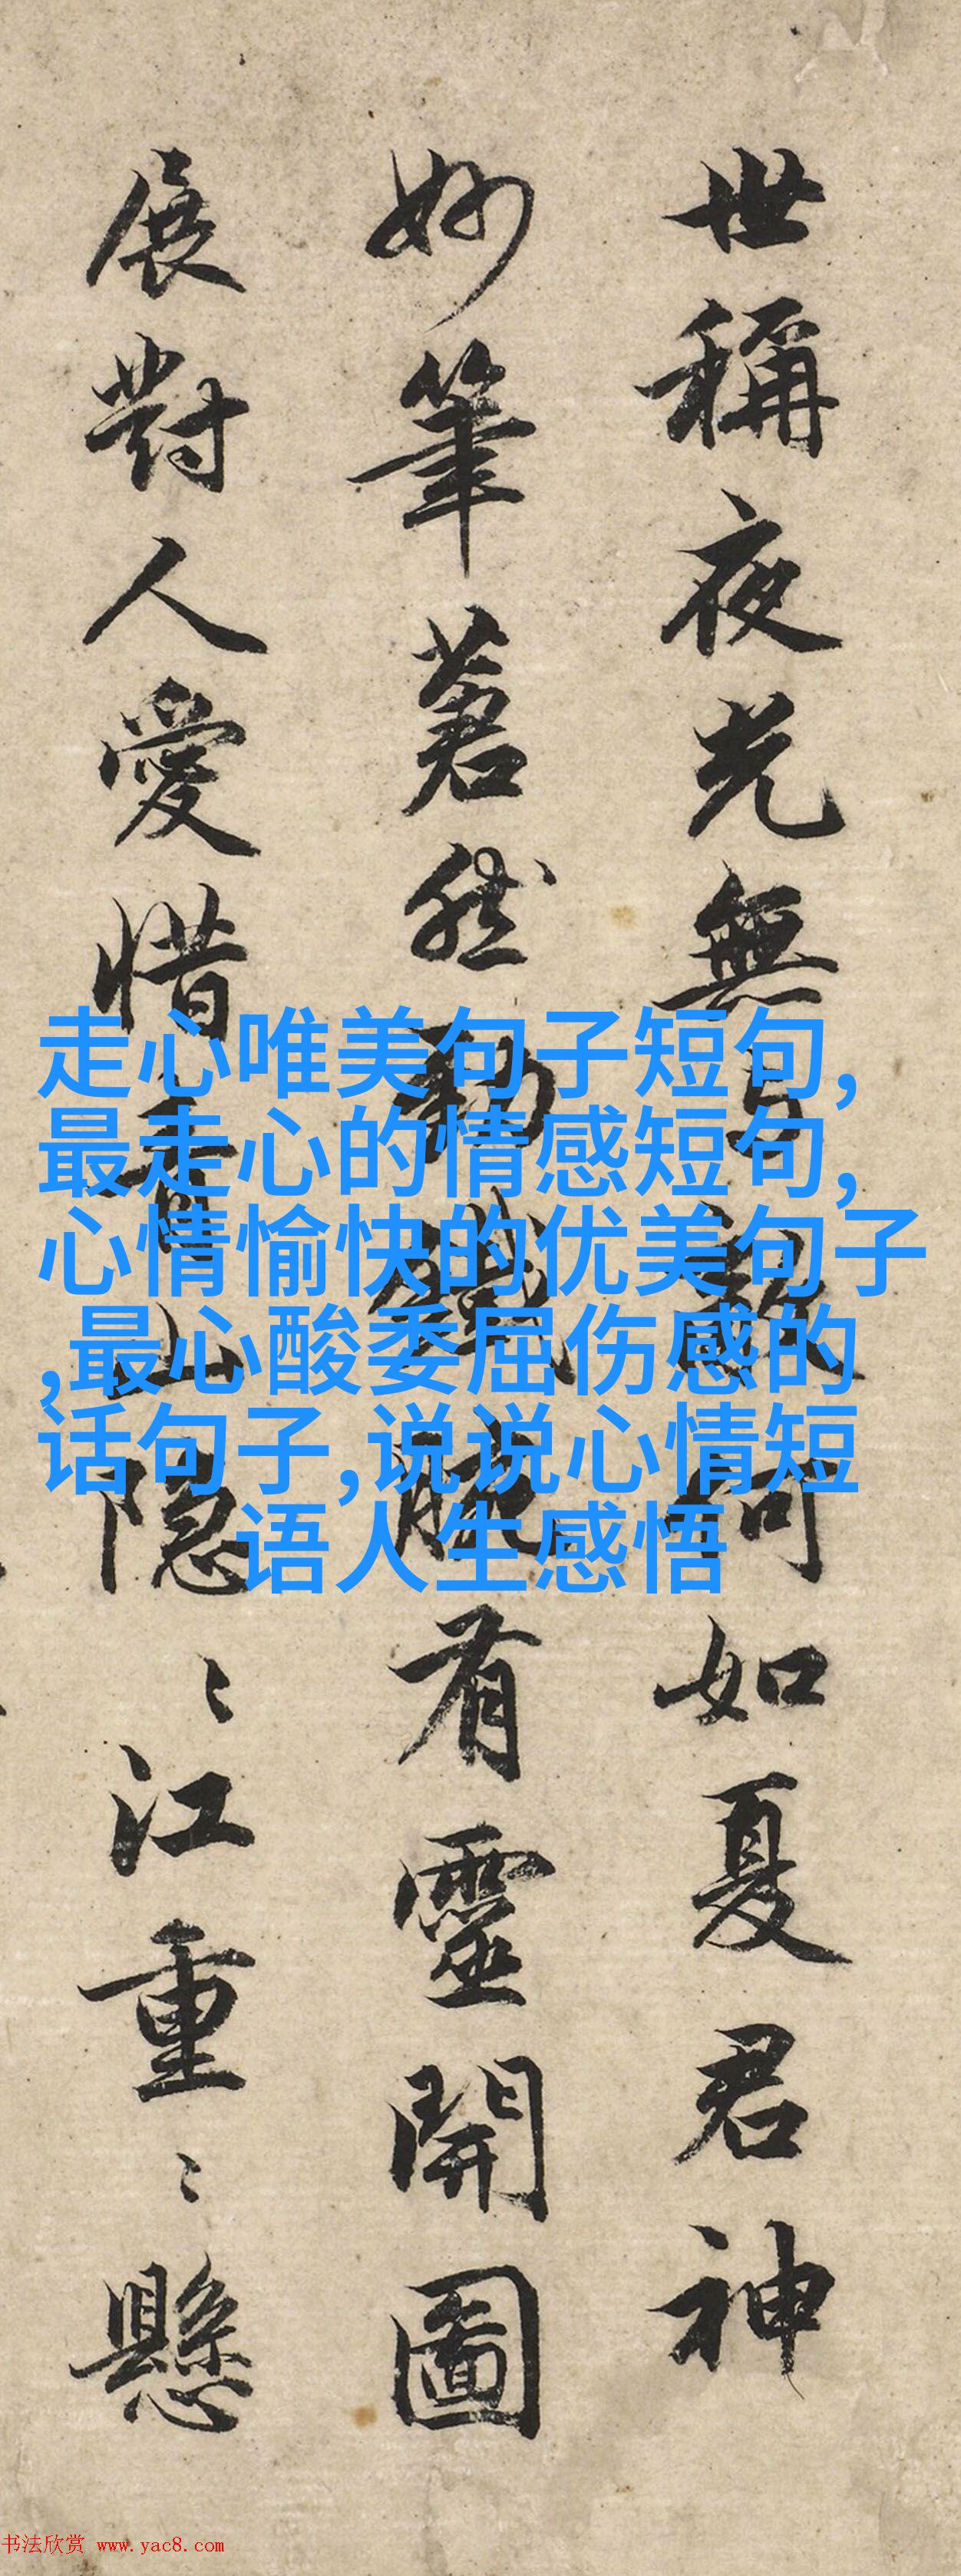 世稱夜光無與敵何如夏君神
妙筆著然動纖腕有靈開圖
展對人愛惜吾山隱〻江重〻懸
走心唯美句子短句,
最走心的情感短句,
心情愉快的优美句子
,最心酸委屈伤感的
话句子,说说心情短
语人生感悟
书法欣赏 www.yac8.com